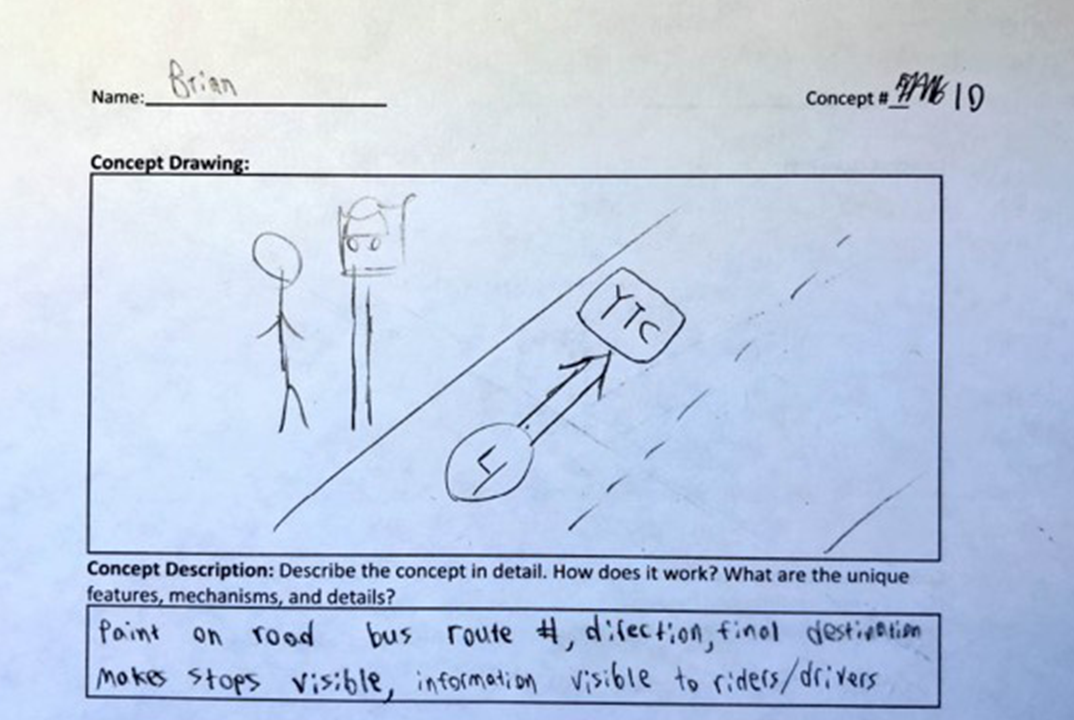 Name: Brian
Concept # 10
Concept Drawing:
YTC
4
Concept Description: Describe the concept in detail. How does it work? What are the unique
features, mechanisms, and details?
Paint on road bus route #, direction, final destination
Makes stops visible, information visible to riders/drivers